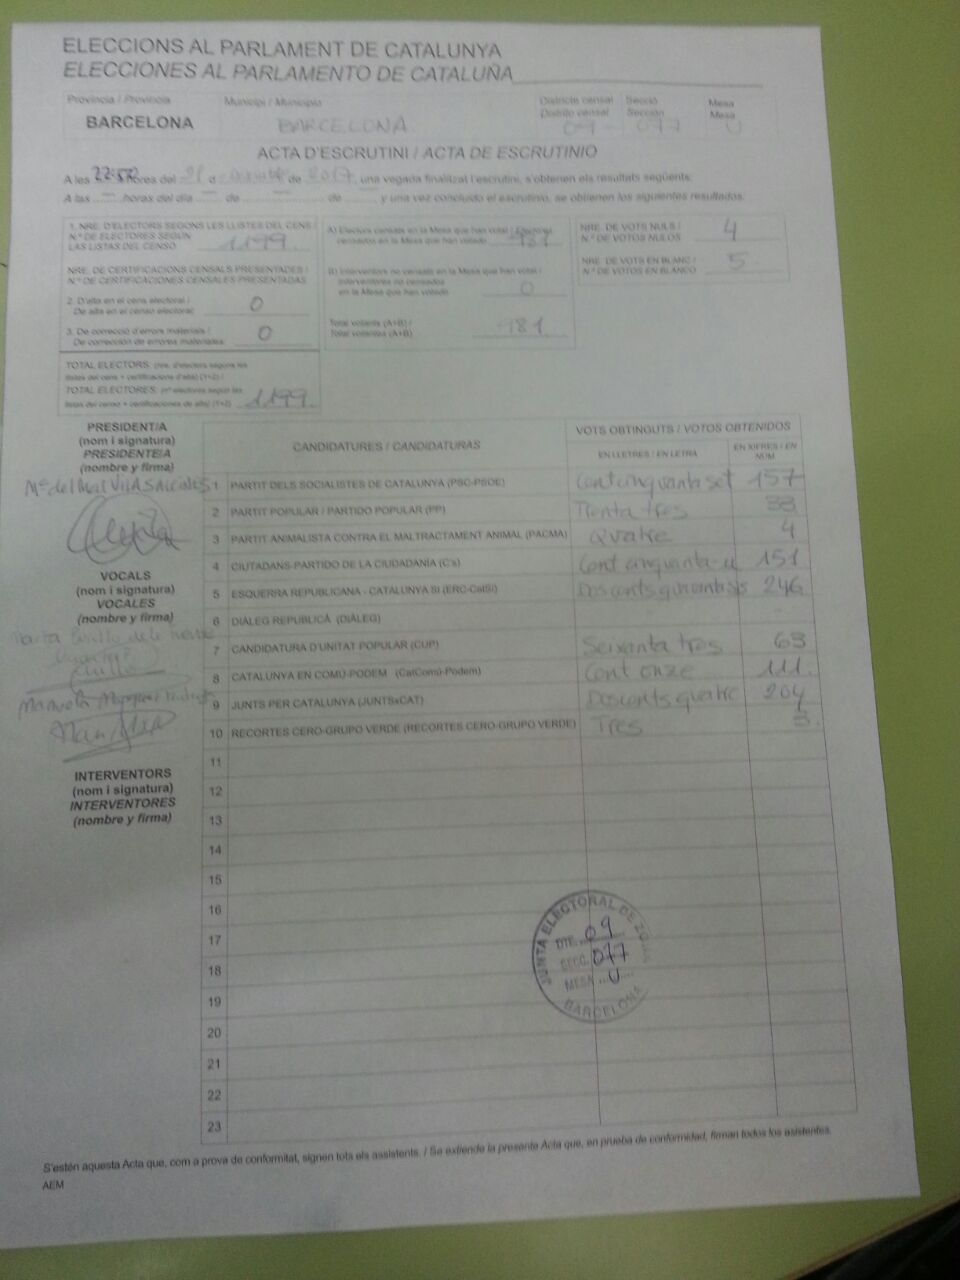 ELECCIONS AL PARLAMENT DE CATALUNYA
ELECCIONES AL PARLAMENTO DE CATALUÑA
Província / Provincia Municipi / Municipio Districte censal Secció Mesa
Distrito censal Sección Mesa
BARCELONA BARCELONA 09 077 U
ACTA D'ESCRUTINI / ACTA DE ESCRUTINIO
A les 22:58 hores del 21 d de 2017, una vegada finalitzat l'escrutini, s'obtenen els resultats següents:
A las horas del día de de y una vez concluido el escrutinio, se obtienen los siguientes resultados:
1. NRE. D'ELECTORS SEGONS LES LLISTES DEL CENS /
N.º DE ELECTORES SEGÚN
LAS LISTAS DEL CENSO 1199
NRE. DE CERTIFICACIONS CENSALS PRESENTADES /
N.º DE CERTIFICACIONES CENSALES PRESENTADAS
2. D'alta en el cens electoral /
De alta en el censo electoral: 0
3. De correcció d'errors materials /
De corrección de errores materiales: 0
TOTAL ELECTORS: (nre. d'electors segons les
llistes del cens + certificacions d'alta) (1+2) /
TOTAL ELECTORES: (nº electores según las
listas del censo + certificaciones de alta) (1+2) 1199
A) Electors censats en la Mesa que han votat / Electores
censados en la Mesa que han votado 981
B) Interventors no censats en la Mesa que han votat /
Interventores no censados
en la Mesa que han votado 0
Total votants (A+B) /
Total votantes (A+B) 981
NRE. DE VOTS NULS /
N.º DE VOTOS NULOS 4
NRE. DE VOTS EN BLANC /
N.º DE VOTOS EN BLANCO 5
PRESIDENT/A
(nom i signatura)
PRESIDENTE/A
(nombre y firma)
Mª del Mar
VOCALS
(nom i signatura)
VOCALES
(nombre y firma)
Manuela
INTERVENTORS
(nom i signatura)
INTERVENTORES
(nombre y firma)
CANDIDATURES / CANDIDATURAS VOTS OBTINGUTS / VOTOS OBTENIDOS
EN LLETRES / EN LETRA EN XIFRES / EN NÚM
1 PARTIT DELS SOCIALISTES DE CATALUNYA (PSC-PSOE) Cent cinquanta set 157
2 PARTIT POPULAR / PARTIDO POPULAR (PP) Trenta tres 33
3 PARTIT ANIMALISTA CONTRA EL MALTRACTAMENT ANIMAL (PACMA) Quatre 4
4 CIUTADANS-PARTIDO DE LA CIUDADANÍA (C's) Cent cinquanta-u 151
5 ESQUERRA REPUBLICANA - CATALUNYA SÍ (ERC-CatSí) 246
6 DIÀLEG REPUBLICÀ (DIÀLEG) - -
7 CANDIDATURA D'UNITAT POPULAR (CUP) Seixanta tres 63
8 CATALUNYA EN COMÚ-PODEM (CatComú-Podem) Cent onze 111
9 JUNTS PER CATALUNYA (JUNTSxCAT) Doscents quatre 204
10 RECORTES CERO-GRUPO VERDE (RECORTES CERO-GRUPO VERDE) Tres 3
11
12
13
14
15
16
17
18
19
20
21
22
23
JUNTA ELECTORAL DE ZONA
DTE. 09
SECC. 077
MESA U
BARCELONA
S'estén aquesta Acta que, com a prova de conformitat, signen tots els assistents. / Se extiende la presente Acta que, en prueba de conformidad, firman todos los asistentes.
AEM